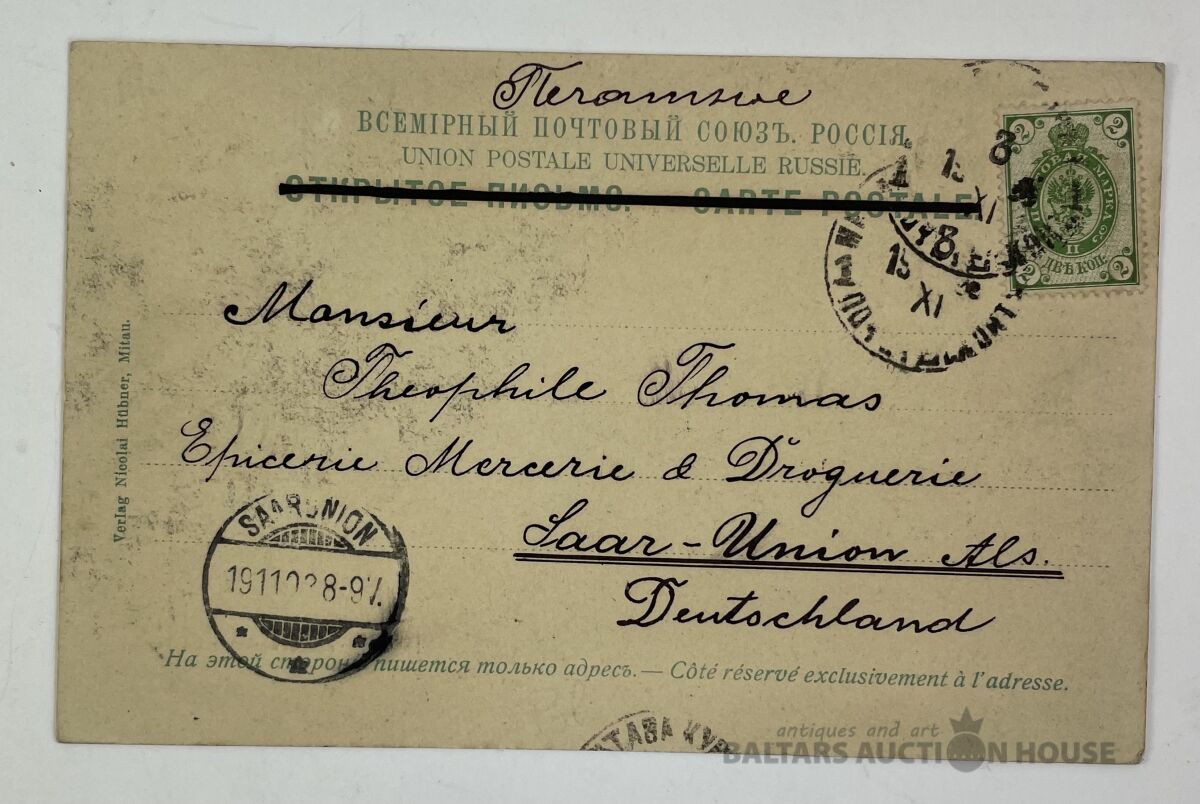 Печатное
ВСЕМІРНЫЙ ПОЧТОВЫЙ СОЮЗЪ. РОССІЯ.
UNION POSTALE UNIVERSELLE RUSSIE.
ОТКРЫТОЕ ПИСЬМО. CARTE POSTALE
2 2
ПОЧТОВАЯ МАРКА
ДВѢ КОП.
2 2
15
XI
Monsieur
Theophile Thomas
Epicerie Mercerie & Droguerie
Saar-Union Als.
Deutschland
Verlag Nicolai Hübner, Mitau.
SAARUNION
8-9V.
На этой сторонѣ пишется только адресъ. — Côté réservé exclusivement à l'adresse.
antiques and art
BALTARS AUCTION HOUSE